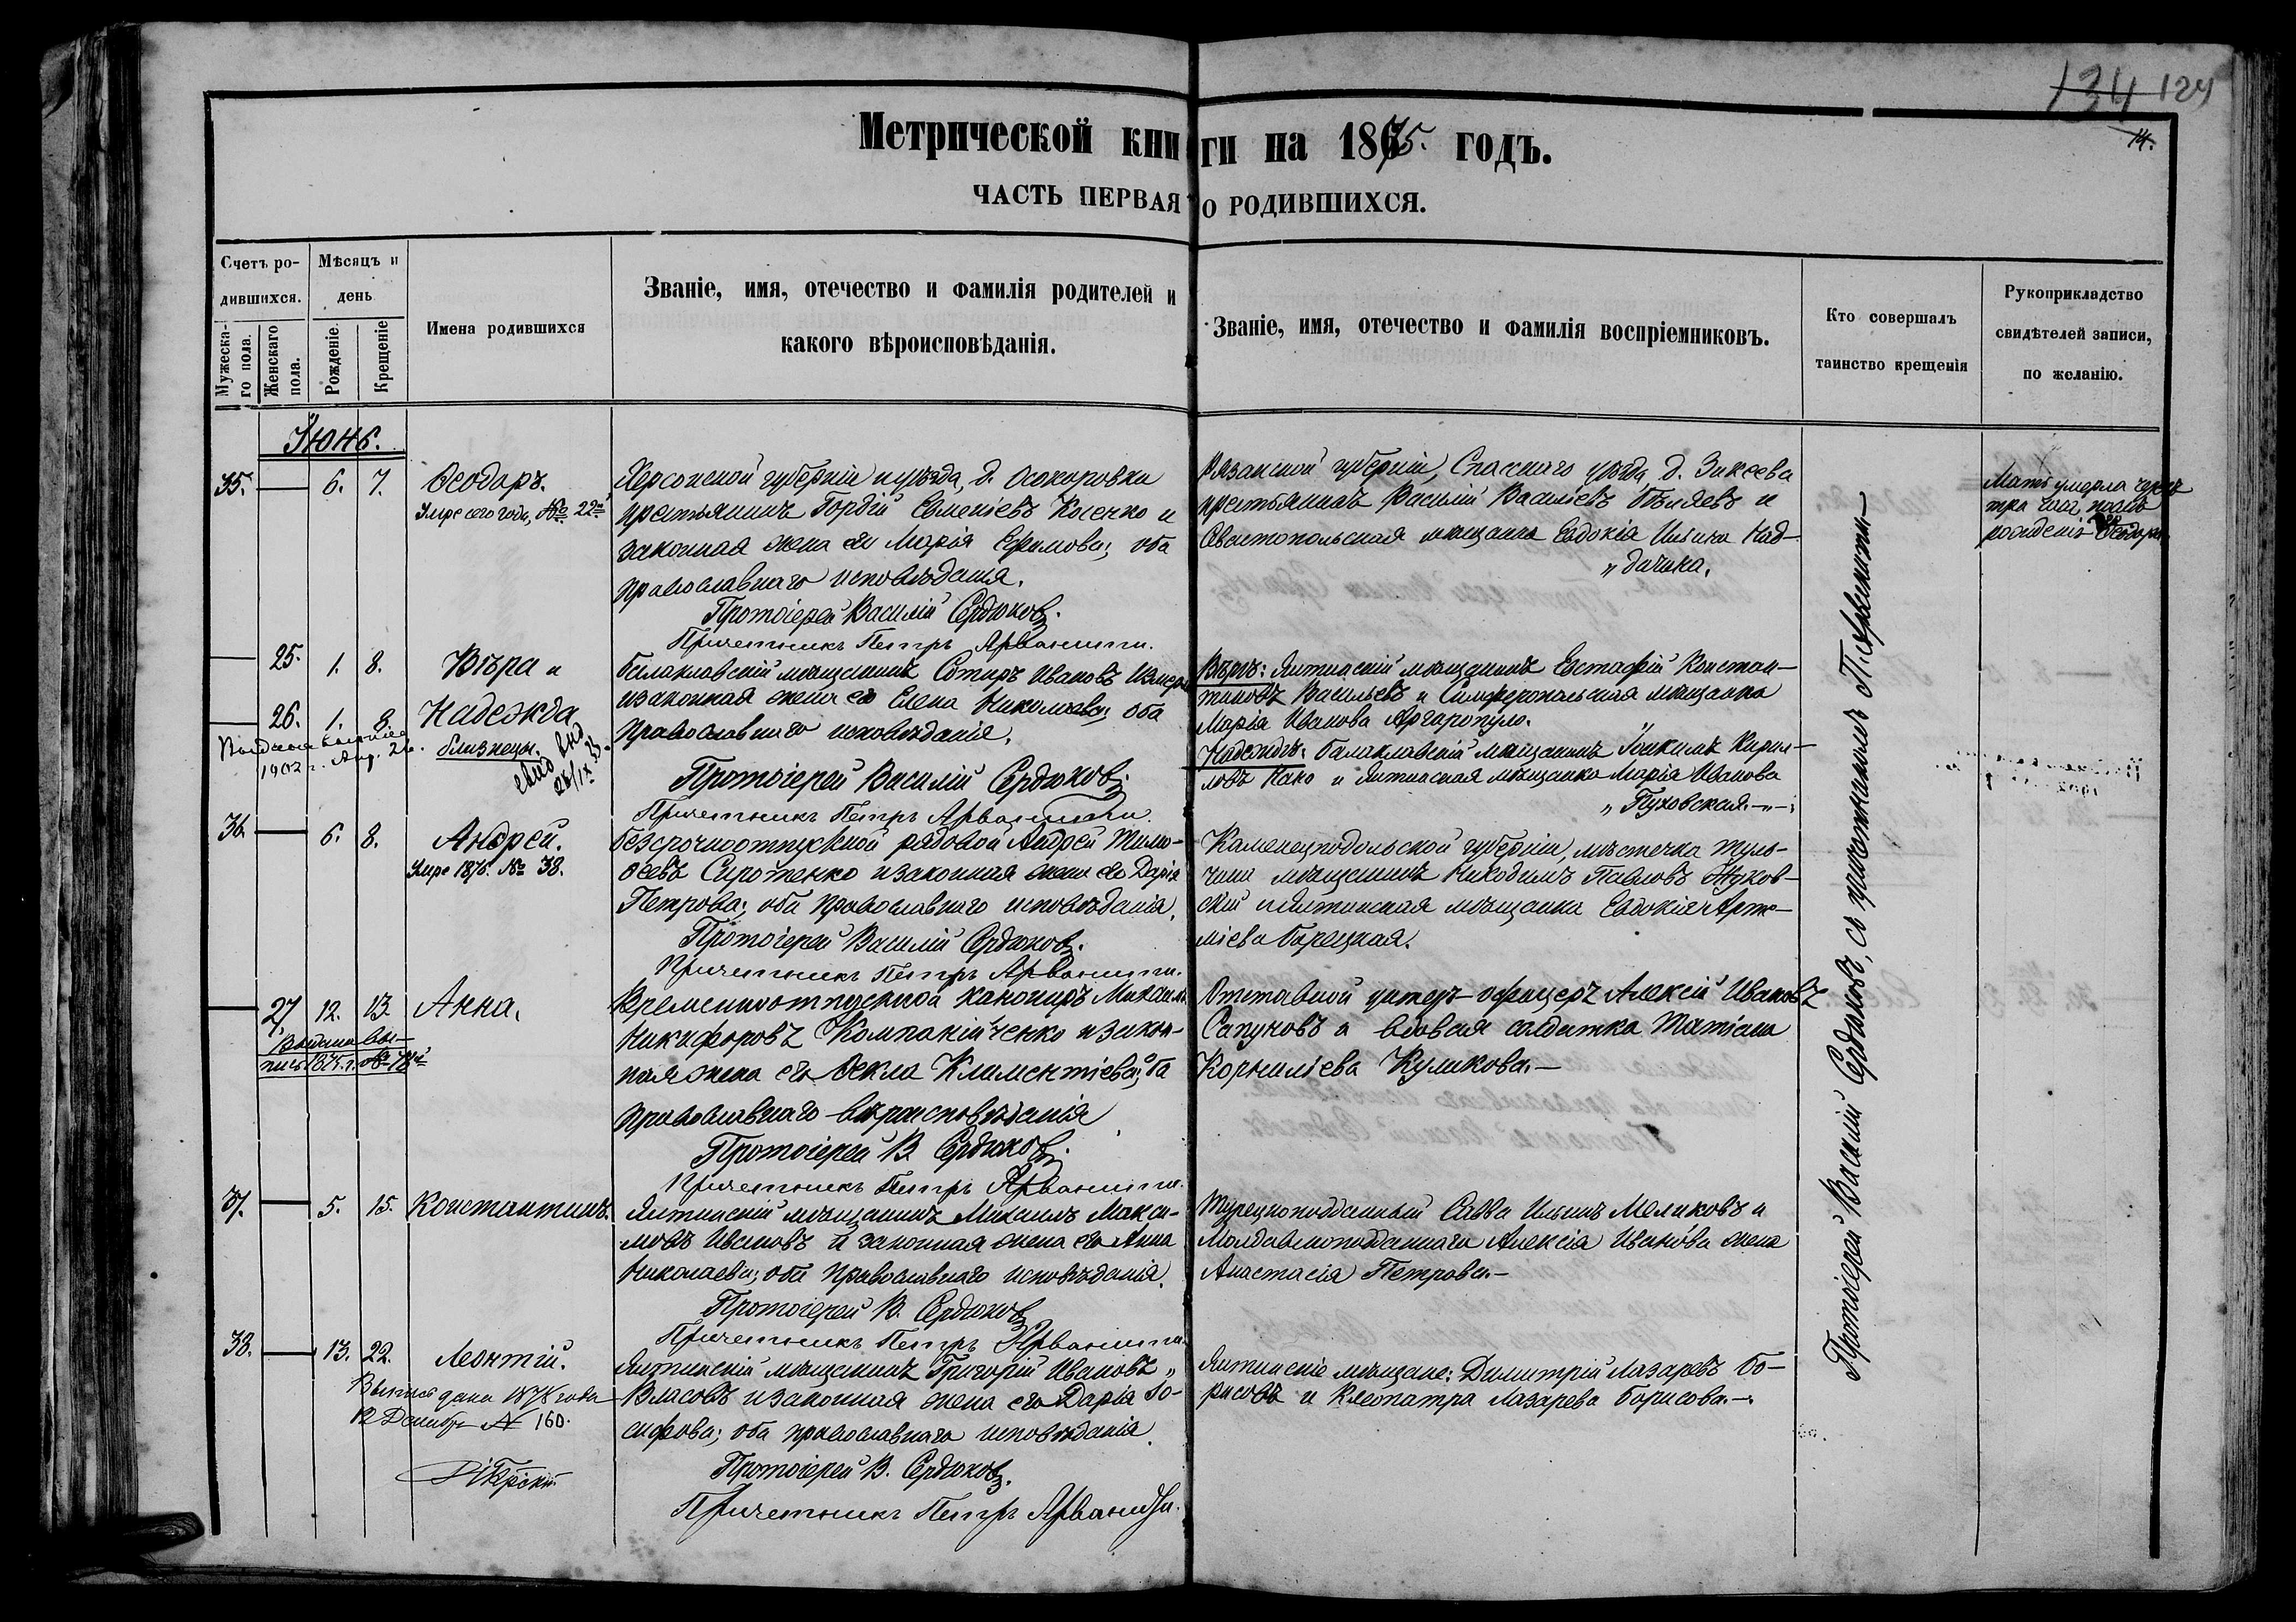 134 124
14.
Метрической книги на 1875. годъ.
ЧАСТЬ ПЕРВАЯ О РОДИВШИХСЯ.
Счетъ родившихся.
Мѣсяцъ и день
Имена родившихся
Званіе, имя, отечество и фамилія родителей и
какого вѣроисповѣданія.
Званіе, имя, отечество и фамилія воспріемниковъ.
Кто совершалъ
таинство крещенія
Рукоприкладство
свидѣтелей записи,
по желанію.
Мужескаго пола.
Женскаго пола.
Рожденіе.
Крещеніе
Іюнь.
35. — 6. 7. Ѳеодоръ.
Умре сего года, № 22й
Херсонской губерніи и уѣзда, д. Осокоровки
крестьянинъ Гордій Евменіевъ Косенко и
законная жена его Марія Ефимова; оба
православнаго исповѣданія.
Протоіерей Василій Сердюковъ.
Причетникъ Петръ Арванити.
Рязанской губерніи, Спасскаго уѣзда, д. Зикеева
крестьянинъ Василій Васильевъ Бѣляевъ и
Севастопольская мѣщанка Евдокія Ильина Над-
„дачина.
Мать умерла чрезъ
три часа послѣ
рожденія Ѳеодора
— 25. 1. 8. Вѣра и
— 26. 1. 8. Надежда
близнецы.
1902 г. Апр. 26.
Балаклавскій мѣщанинъ Сотиръ Ивановъ
и законная жена его Елена Николаева; оба
православнаго исповѣданія.
Протоіерей Василій Сердюковъ.
Причетникъ Петръ Арванити.
Вѣры: Ялтинскій мѣщанинъ Евстафій Констан-
тиновъ Васильевъ и Симферопольская мѣщанка
Марія Иванова Аргиропуло.
Надежды: Балаклавскій мѣщанинъ Іоакимъ Кирил-
ловъ Како и Ялтинская мѣщанка Марія Иванова
„Пуховская.—„—
36. — 6. 8. Андрей.
Умре 1876. № 38.
Безсрочноотпускной рядовой Андрей Тимо-
ѳеевъ Сиротенко и законная жена его Дарія
Петрова; оба православнаго исповѣданія.
Протоіерей Василій Сердюковъ.
Причетникъ Петръ Арванити.
Каменецподольской губерніи, мѣстечка Туль-
чина мѣщанинъ Никодимъ Павловъ Жуков-
скій и Ялтинская мѣщанка Евдокія Арте-
міева Борецкая.
— 27. 12. 13. Анна.
Выдана вы-
пись 1875 г. № 78й
Временноотпускной канониръ Михаилъ
Никифоровъ Компанійченко и закон-
ная жена его Ѳекла Климентіева; оба
православнаго вѣроисповѣданія.
Протоіерей В. Сердюковъ.
Причетникъ Петръ Арванити.
Отставной унтеръ-офицеръ Алексій Ивановъ
Сапуновъ и вдовая солдатка Татіана
Корнилієва Куликова.—
37. — 5. 15. Константинъ.
Ялтинскій мѣщанинъ Михаилъ Макси-
мовъ Ивановъ и законная жена его Анна
Николаева; оба православнаго исповѣданія.
Протоіерей В. Сердюковъ
Причетникъ Петръ Арванити.
Турецкоподданный Савва Ильинъ Меликовъ и
Молдавскоподданнаго Алексія Иванова жена
Анастасія Петрова.—
38. — 13. 22. Леонтій.
Выпись дана 1878 года
12 Декабр. № 160.
Ялтинскій мѣщанинъ Григорій Ивановъ „
Власовъ и законная жена его Дарія Іо-
сифова; оба православнаго исповѣданія.
Протоіерей В. Сердюковъ.
Причетникъ Петръ Арваниди.
Ялтинскіе мѣщане: Димитрій Лазаревъ Бо-
рисовъ и Клеопатра Лазарева Борисова.—
Протоіерей Василій Сердюковъ, съ причетникомъ П. Арванити.—